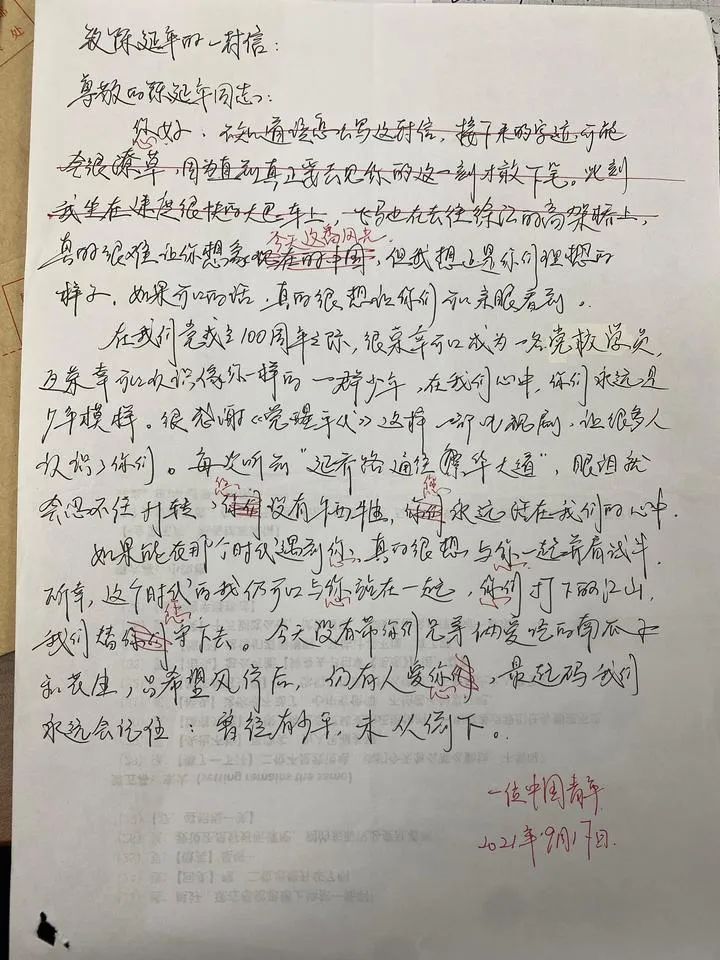 致陈延年的一封信：
尊敬的陈延年同志：
您好，不知道该怎么写这封信，接下来的字迹可能
会很潦草，因为直到真正要去见你的这一刻才敢下笔。此刻
我坐在速度很快的大巴车上，飞驰在去往徐汇的高架桥上，
今天这番风光
真的很难让你想象现在的中国，但我想这是你们理想的
样子，如果可以的话，真的很想你们可以亲眼看到。
在我们党成立100周年之际，很荣幸可以成为一名党校学员，
更荣幸可以认识像你一样的一群少年，在我们心中，你们永远是
少年模样。很感谢《觉醒年代》这样一部电视剧，让很多人
认识了你们。每次听到“延乔路通往繁华大道”，眼泪就
会忍不住打转，你们没有牺牲，你们永远活在我们的心中。
如果能在那个时代遇到你，真的很想与你一起并肩试牛，
所幸，这个时代的我仍可以与你站在一起，你们打下的江山，
我们替你们守下去。今天没有带你们兄弟俩爱吃的南瓜
和花生，只希望风停后，仍有人爱你们，最起码我们
永远会记住：曾经有少年，未从倒下。
一位中国青年
2021年9月17日